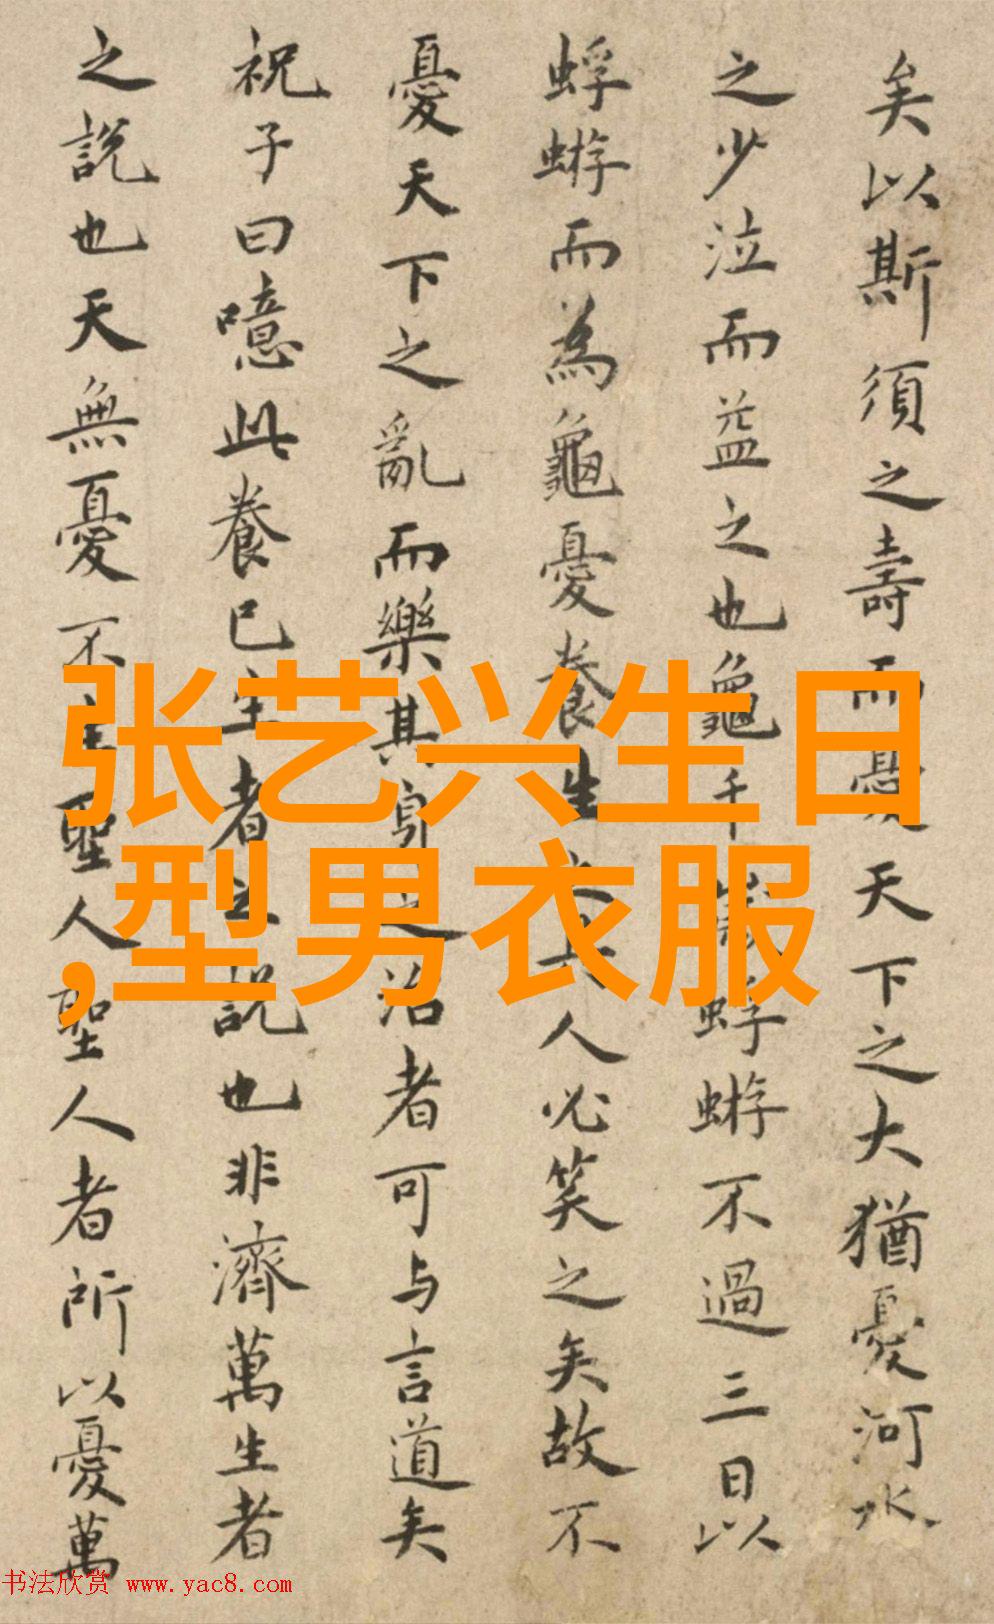 矣以斯須之壽而憂天下之大猶憂河水
之少泣而益之也龜千歲蜉蝣不過三日以
蜉蝣而為龜憂養生之具人必笑之矣故不
憂天下之亂而樂其身之治者可与言道矣
祝子曰噫此養已生者之説也非濟萬生者
之説也天無憂不生聖人聖人者所以憂萬
张艺兴生日
,型男衣服
书法欣赏 www.yac8.com